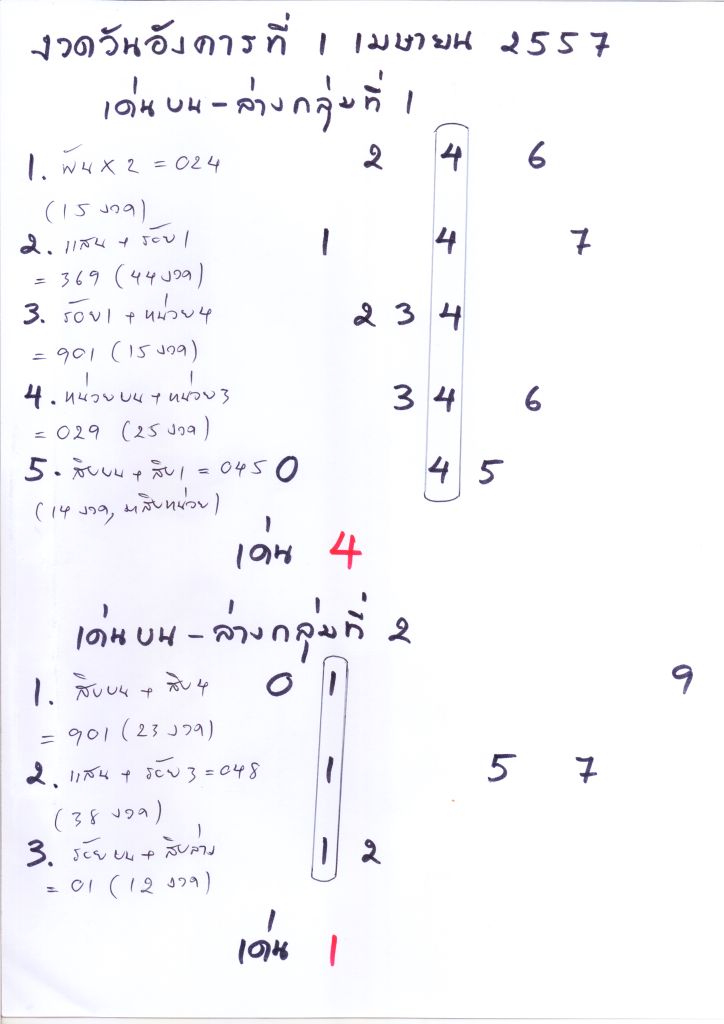 งวดวันอังคารที่ 1 เมษายน 2557
เด่นบน-ล่างกลุ่มที่ 1
1. พัน x 2 = 024 2 4 6
(15 งวด)
2. แสน + ร้อย1 1 4 7
= 369 (44 งวด)
3. ร้อย1 + หน่วย4 2 3 4
= 901 (15 งวด)
4. หน่วยบน + หน่วย3 3 4 6
= 029 (25 งวด)
5. สิบบน + สิบ1 = 045 0 4 5
(14 งวด, มาสิบหน่วย)
เด่น 4
เด่นบน-ล่างกลุ่มที่ 2
1. สิบบน + สิบ4 0 1 9
= 901 (23 งวด)
2. แสน + ร้อย3 = 048 1 5 7
(38 งวด)
3. ร้อยบน + สิบล่าง 1 2
= 01 (12 งวด)
เด่น 1